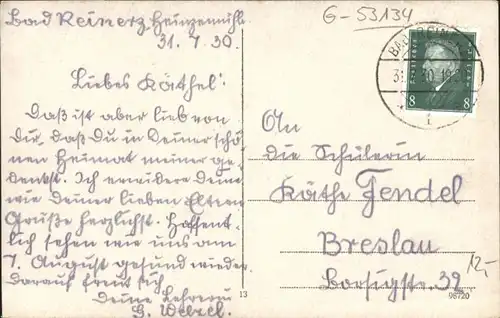 Bad Reinerz Heinzemühl
31. 7. 30.
Liebes Käthel!
Daß ist aber lieb von
dir, daß du in Deiner schö-
nen Heimat meiner ge-
denkst. Ich erwidere Deine
wie deiner lieben Eltern
Grüße herzlichst. Hoffent-
lich sehen wir uns am
7. August gesund wieder.
Darauf freut sich
Deine Lehrerin
G-53134
8 8
An
die Schülerin
Käthe Fendel
Breslau
Borsigstr. 32.
12,-
13
98720